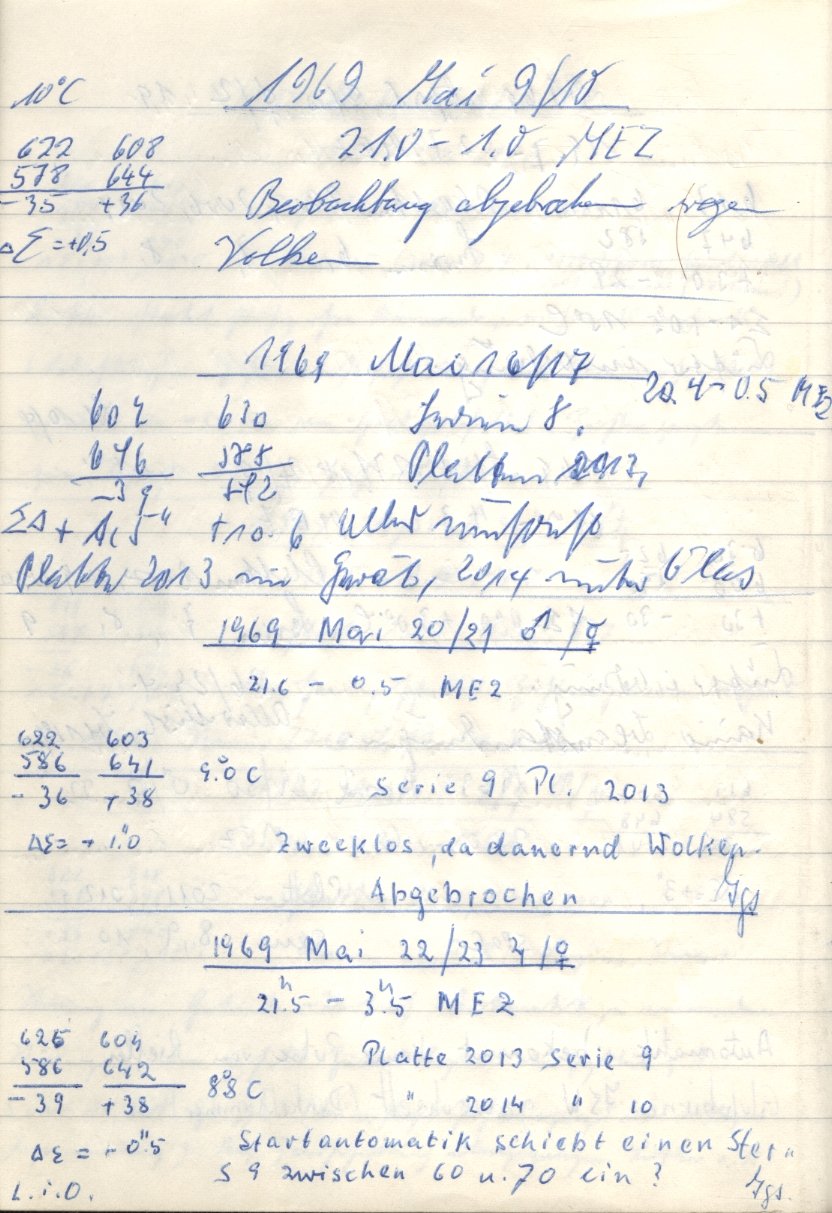 10°C 1969 Mai 9/10
622 608 21.0 - 1.0 MEZ
578 644
-35 +36 Beobachtung abgebrochen wegen
Δ Σ = +0,5 Wolken
1969 Mai 16/17
20.4 - 0.5 MEZ
607 630 Serie 8,
646 588 Platten 2013,
-39 +42
ΣΔ +
Platte 2013 2014 Glas
1969 Mai 20/21 ♂/☿
21.6 - 0.5 MEZ
622 603
586 641 9.°0 C Serie 9 Pl. 2013
-36 +38
ΔΣ = - 1."0 Zwecklos, da dauernd Wolken.
Abgebrochen Jgs
1969 Mai 22/23 ♃/♀
21.h5 - 3.h5 MEZ
625 604 Platte 2013 Serie 9
586 642 8.°8 C
-39 +38 " 2014 " 10
ΔΣ = - 0."5 Startautomatik schiebt einen Stern
S 9 zwischen 60 u. 70 ein?
L.i.O. Jgs.